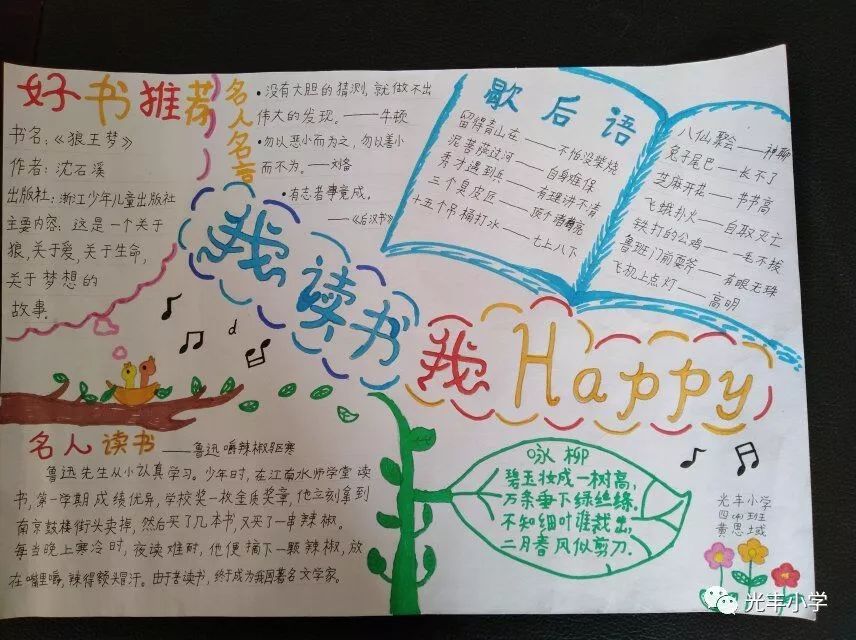 好书推荐
书名:《狼王梦》
作者:沈石溪
出版社:浙江少年儿童出版社
主要内容:这是一个关于
狼,关于爱,关于生命,
关于梦想的
故事.
名人名言
·没有大胆的猜测,就做不出
伟大的发现。——牛顿
·勿以恶小而为之,勿以善小
而不为。——刘备
·有志者事竟成。
——《后汉书》
歇后语
留得青山在——不怕没柴烧
泥菩萨过河——自身难保
秀才遇到兵——有理讲不清
三个臭皮匠——顶个诸葛亮
十五个吊桶打水——七上八下
八仙聚会——神聊
兔子尾巴——长不了
芝麻开花——节节高
飞蛾扑火——自取灭亡
铁打的公鸡——一毛不拔
鲁班门前耍斧——有眼无珠
飞机上点灯——高明
我读书我Happy
名人读书——鲁迅嚼辣椒驱寒
鲁迅先生从小认真学习。少年时,在江南水师学堂读
书,第一学期成绩优异,学校奖一枚金质奖章,他立刻拿到
南京鼓楼街头卖掉,然后买了几本书,又买了一串辣椒。
每当晚上寒冷时,夜读难耐,他便摘下一颗辣椒,放
在嘴里嚼,辣得额头冒汗。由于苦读书,终于成为我国著名文学家。
咏柳
碧玉妆成一树高,
万条垂下绿丝绦。
不知细叶谁裁出,
二月春风似剪刀.
光丰小学
四(4)班
黄思域
光丰小学